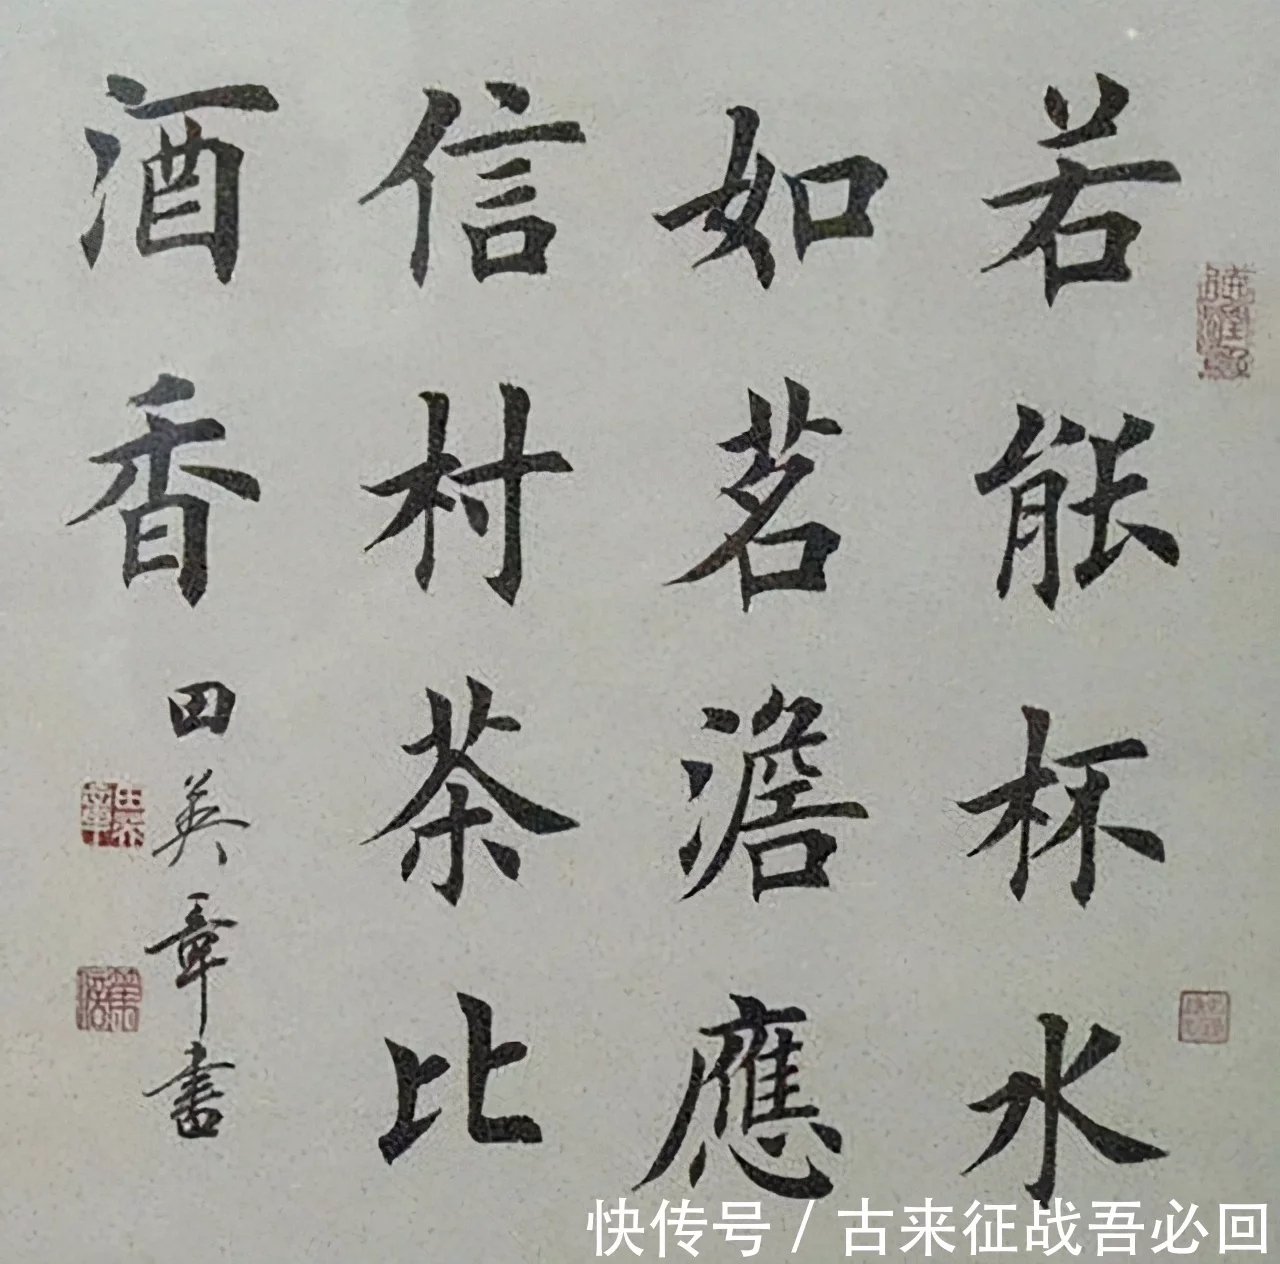 若能杯水
如茗澹應
信村茶比
酒香
田英章書
快传号 / 古来征战吾必回